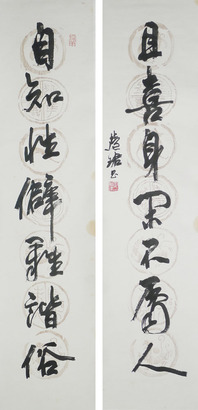 且喜身閑不屬人
自知性僻難諧俗